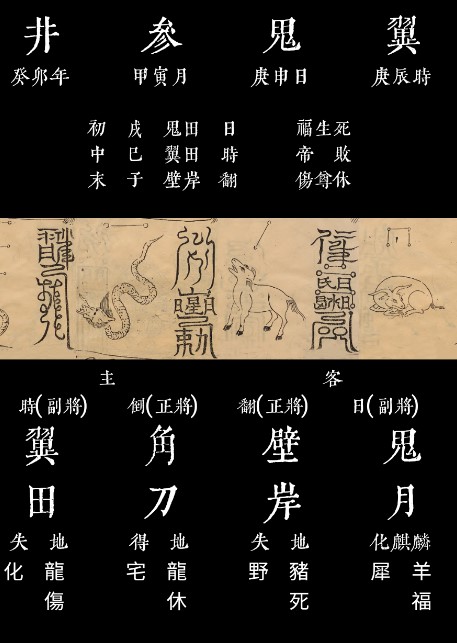 井 參 鬼 翼
癸卯年 甲寅月 庚申日 庚辰時
初 戌 鬼田 日 福生死
中 巳 翼田 時 帝 敗
末 子 壁岸 翻 傷尊休
主 客
時(副將) 倒(正將) 翻(正將) 日(副將)
翼 角 壁 鬼
田 刀 岸 月
失 地 得 地 失 地 化麒麟
化 龍 宅 龍 野 豬 犀 羊
傷 休 死 福